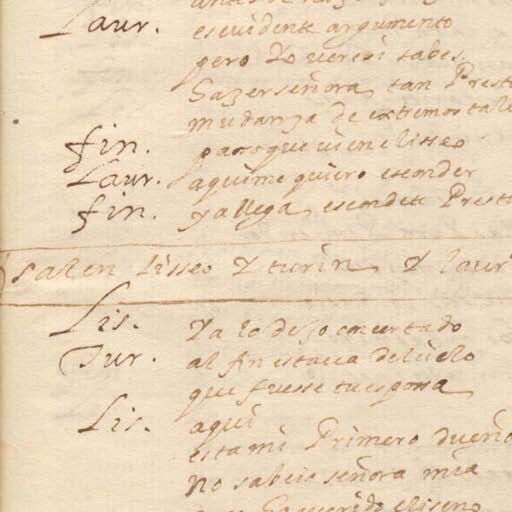 Laur. es evidente argumento
pero yo veré si sabes
hazer señora tan Prest
mudanza de extremos tale
fin. paso que viene lisseo
Laur. aqui me quiero esconder
fin. ya llega esconde te Prest
salen lisseo y turin y laur
Lis. ya lo dejo concertado
Tur. al fin estava del cielo
que fuesse tu esposa
Lis. aqui
esta mi Primero dueño
no sabeis señora mia